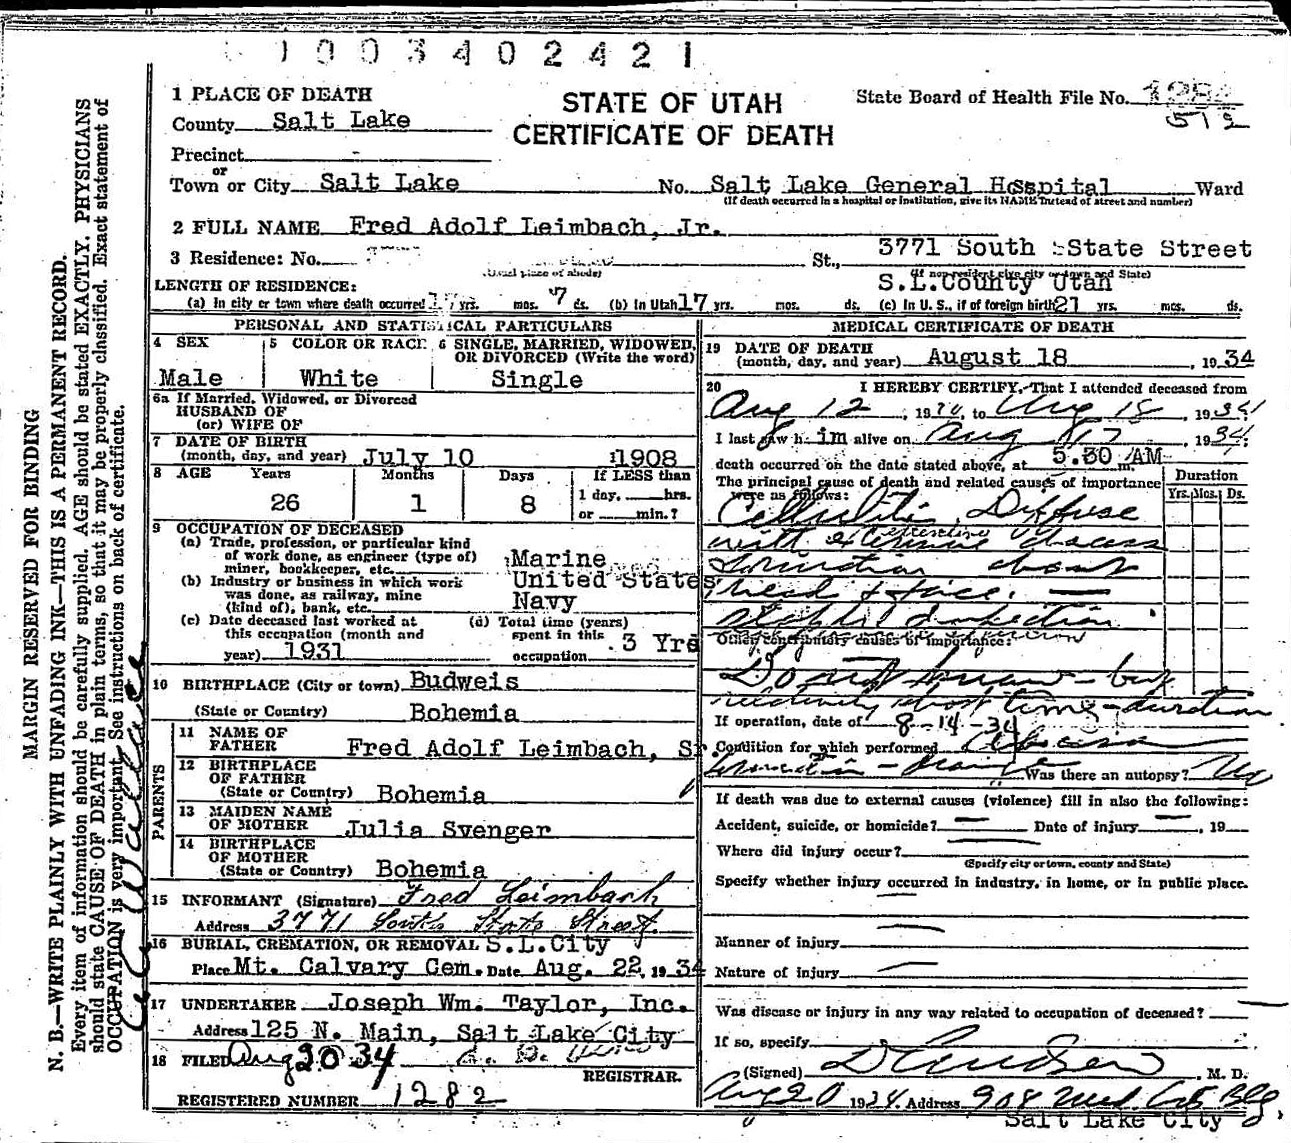 1003402421
1 PLACE OF DEATH
STATE OF UTAH
CERTIFICATE OF DEATH
State Board of Health File No. 1284
512
County Salt Lake
Precinct -
or
Town or City Salt Lake No. Salt Lake General Hospital Ward
(If death occurred in a hospital or institution, give its NAME instead of street and number)
2 FULL NAME Fred Adolf Leimbach, Jr.
3 Residence: No. St., 3771 South State Street
(Usual place of abode) (If non-resident give city or town and State)
S.L.County Utah
LENGTH OF RESIDENCE:
(a) In city or town where death occurred 17 yrs. mos. 7 ds. (b) In Utah 17 yrs. mos. ds. (c) In U. S., if of foreign birth 21 yrs. mos. ds.
PERSONAL AND STATISTICAL PARTICULARS
4 SEX
Male
5 COLOR OR RACE
White
6 SINGLE, MARRIED, WIDOWED, OR DIVORCED (Write the word)
Single
6a If Married, Widowed, or Divorced
HUSBAND OF
(or) WIFE OF
7 DATE OF BIRTH
(month, day, and year) July 10 1908
8 AGE Years Months Days If LESS than
26 1 8 1 day, hrs.
or min.?
9 OCCUPATION OF DECEASED
(a) Trade, profession, or particular kind
of work done, as engineer (type of)
miner, bookkeeper, etc. Marine
(b) Industry or business in which work
was done, as railway, mine
(kind of), bank, etc. United States Navy
(c) Date deceased last worked at
this occupation (month and
year) 1931
(d) Total time (years)
spent in this
occupation 3 Yrs
10 BIRTHPLACE (City or town) Budweis
(State or Country) Bohemia
PARENTS
11 NAME OF
FATHER Fred Adolf Leimbach, Sr.
12 BIRTHPLACE
OF FATHER
(State or Country) Bohemia
13 MAIDEN NAME
OF MOTHER Julia Svenger
14 BIRTHPLACE
OF MOTHER
(State or Country) Bohemia
15 INFORMANT (Signature) Fred Leimbach
Address 3771 South State Street.
16 BURIAL, CREMATION, OR REMOVAL S.L.City
Place Mt. Calvary Cem. Date Aug. 22, 1934
17 UNDERTAKER Joseph Wm. Taylor, Inc.
Address 125 N. Main, Salt Lake City
18 FILED Aug 20 34
REGISTRAR.
REGISTERED NUMBER 1282
MEDICAL CERTIFICATE OF DEATH
19 DATE OF DEATH
(month, day, and year) August 18 , 1934
20 I HEREBY CERTIFY, That I attended deceased from
Aug 12 , 1934, to Aug 18 , 1934
I last saw h im alive on Aug 17 , 1934;
death occurred on the date stated above, at 5.30 AM m.
The principal cause of death and related causes of importance
were as follows:
Duration
Yrs. Mos. Ds.
Cellulitis, Diffuse
with extensive abscess
formation about
head & face. —
staph. infection
Other contributory causes of importance:
relatively short time - duration
If operation, date of 8-14-34
Condition for which performed Abscess
formation - drainage Was there an autopsy? No
If death was due to external causes (violence) fill in also the following:
Accident, suicide, or homicide? — Date of injury — , 19
Where did injury occur? —
(Specify city or town, county and State)
Specify whether injury occurred in industry, in home, or in public place.
—
Manner of injury —
Nature of injury —
Was disease or injury in any way related to occupation of deceased? —
If so, specify
(Signed) , M. D.
Aug 20 1934. Address 908 Med. Arts Blg.
Salt Lake City
MARGIN RESERVED FOR BINDING
N. B.—WRITE PLAINLY WITH UNFADING INK—THIS IS A PERMANENT RECORD.
Every item of information should be carefully supplied. AGE should be stated EXACTLY. PHYSICIANS
should state CAUSE OF DEATH in plain terms, so that it may be properly classified. Exact statement of
OCCUPATION is very important. See instructions on back of certificate.